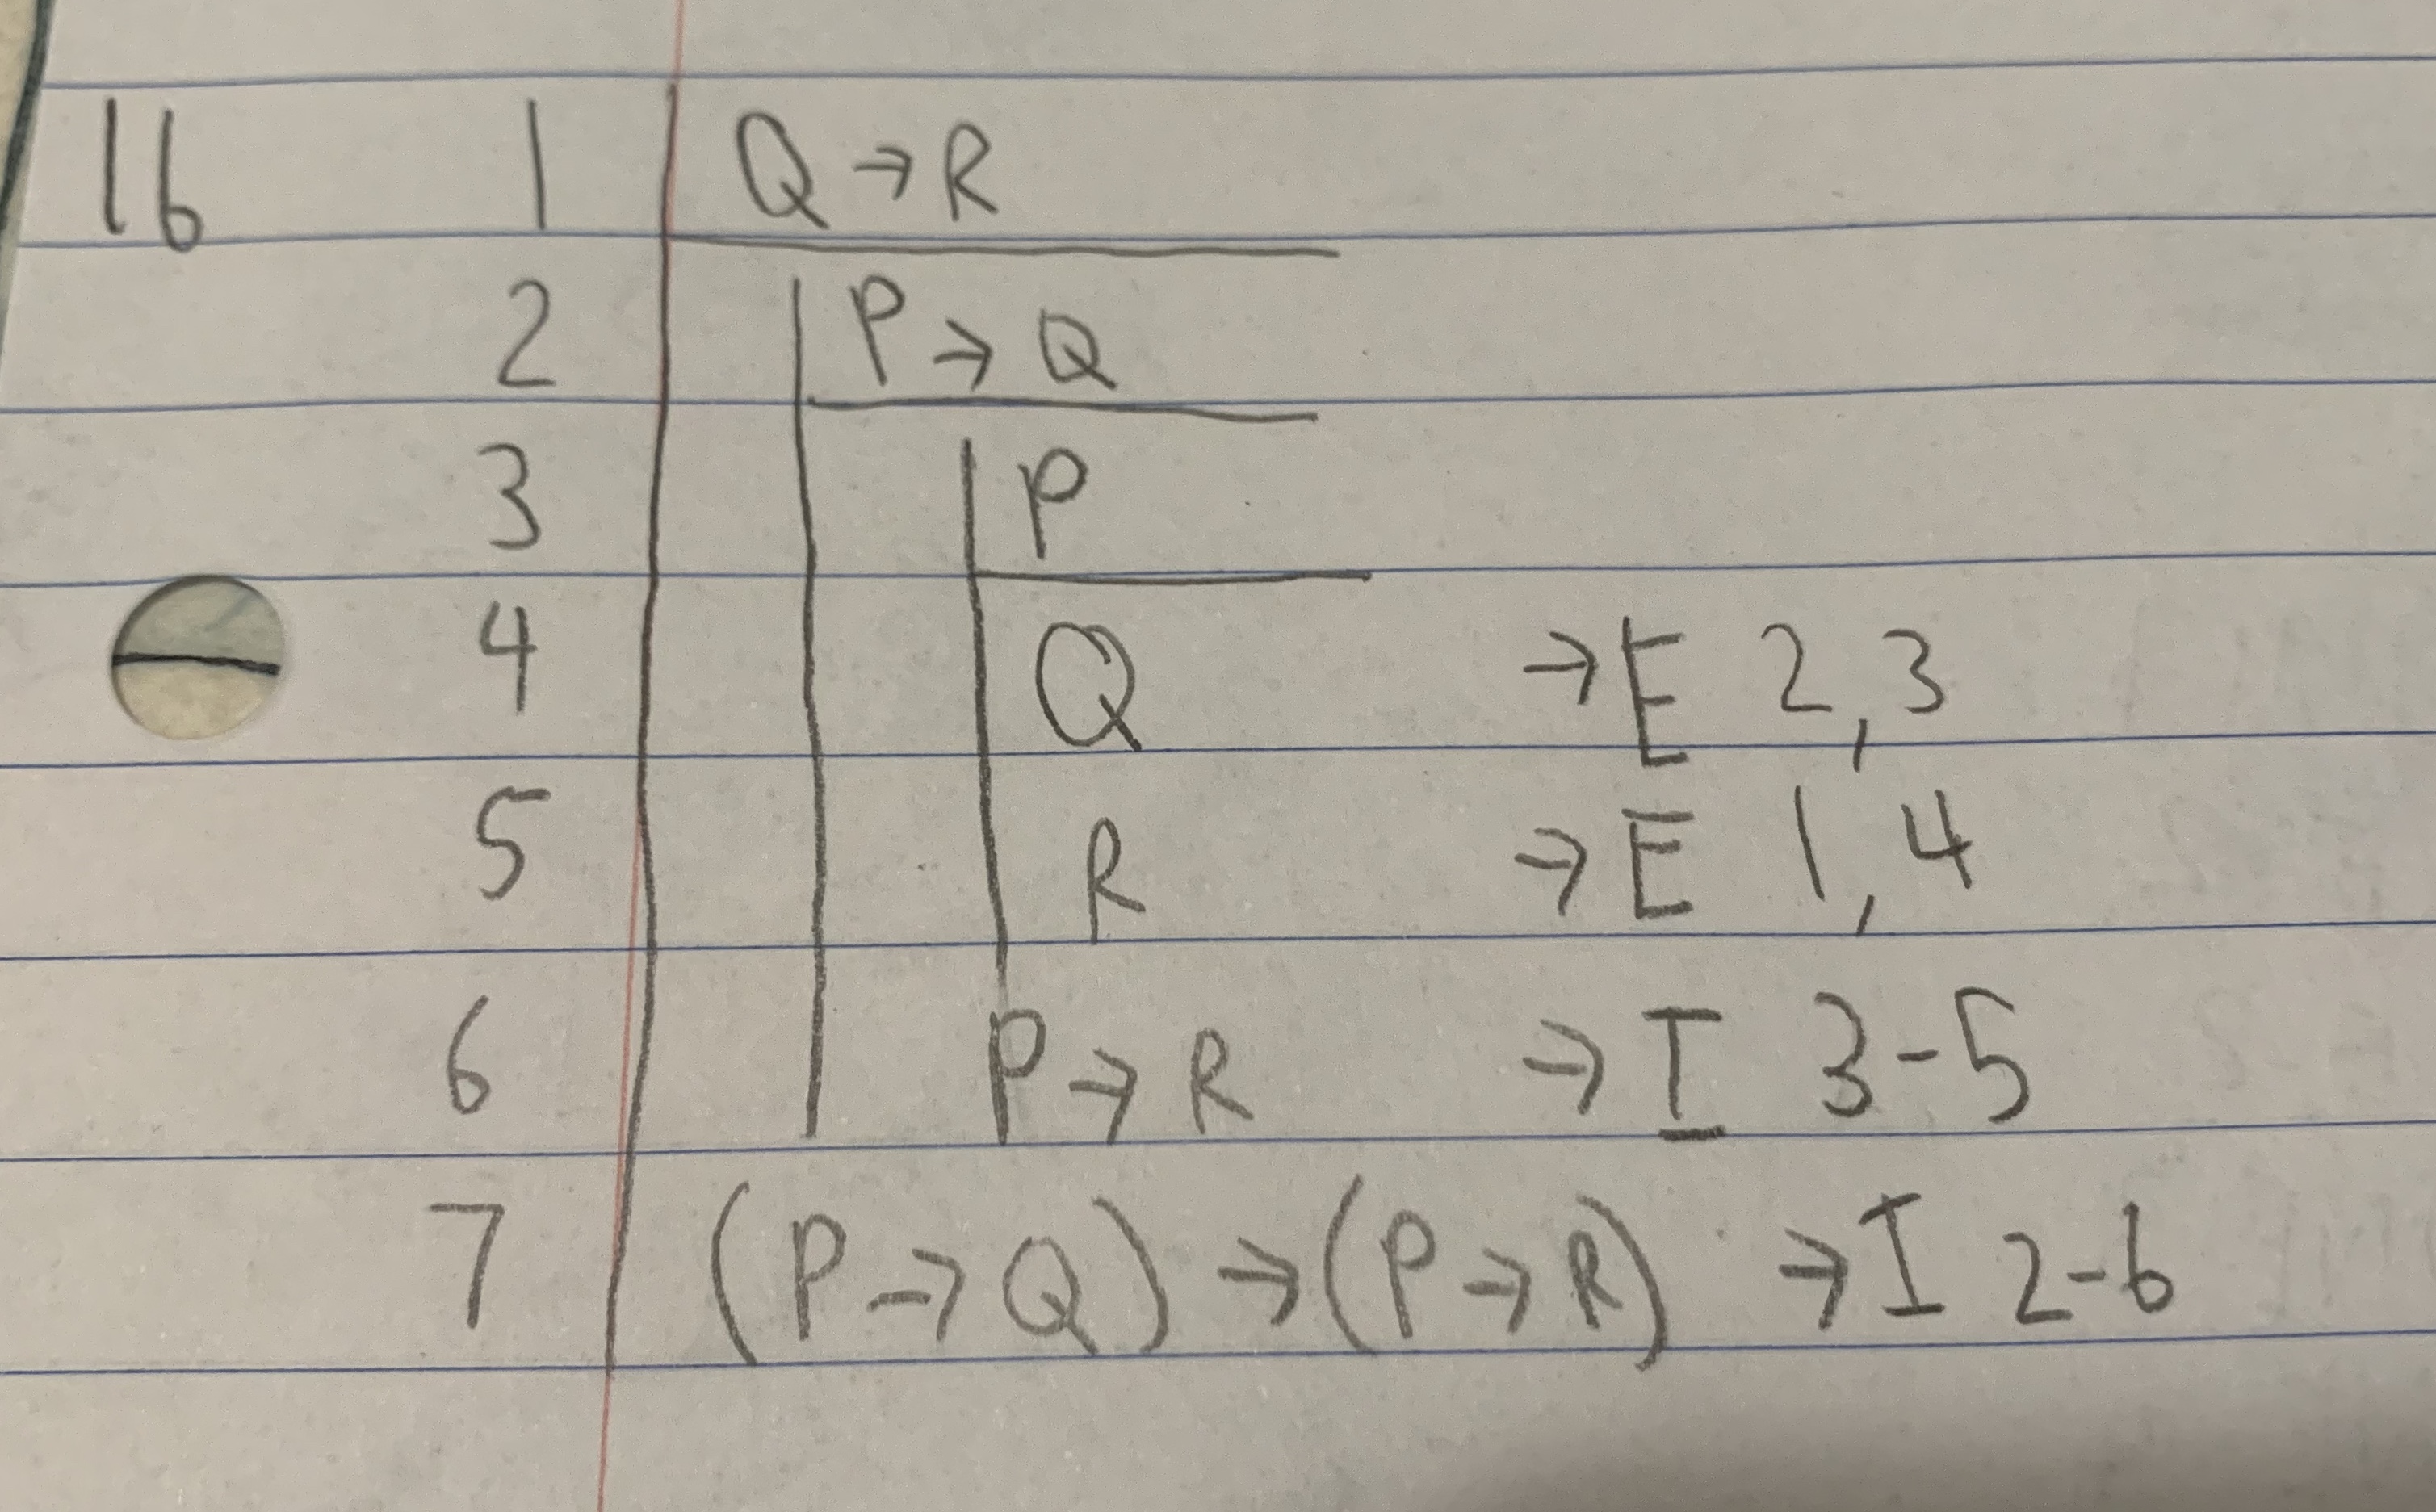 16 1 Q → R
2 P → Q
3 P
4 Q → E 2,3
5 R → E 1,4
6 P → R → I 3-5
7 (P → Q) → (P → R) → I 2-6